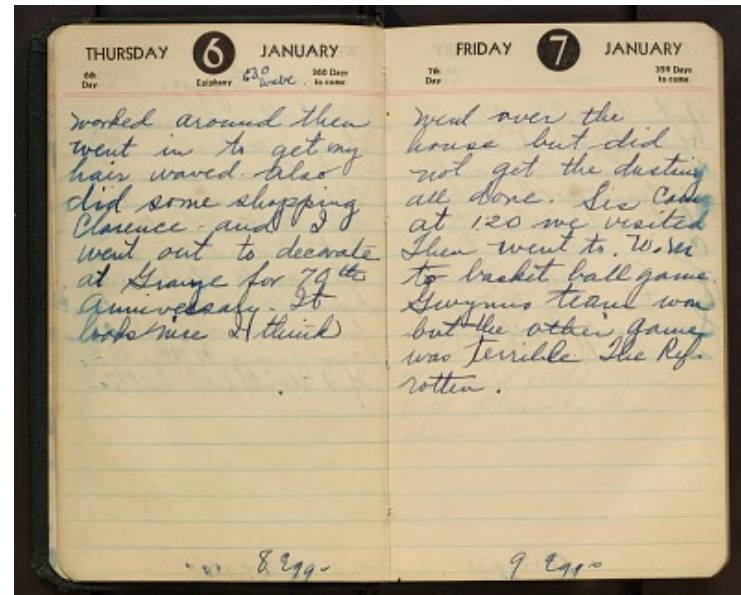 THURSDAY 6 JANUARY
6th Day Epiphany 630 wave. 360 Days to come
worked around then
went in to get my
hair waved. also
did some shopping
Clarence and I
went out to decorate
at Grange for 70th
Anniversary. It
looks nice I think
8 Eggs
FRIDAY 7 JANUARY
7th Day 359 Days to come
went over the
house but did
not get the dusting
all done. Sis came
at 120 we visited
Then went to W.M
to basket ball game.
Gwynns team won
but the other game
was terrible. The Ref.
rotten.
9 Eggs